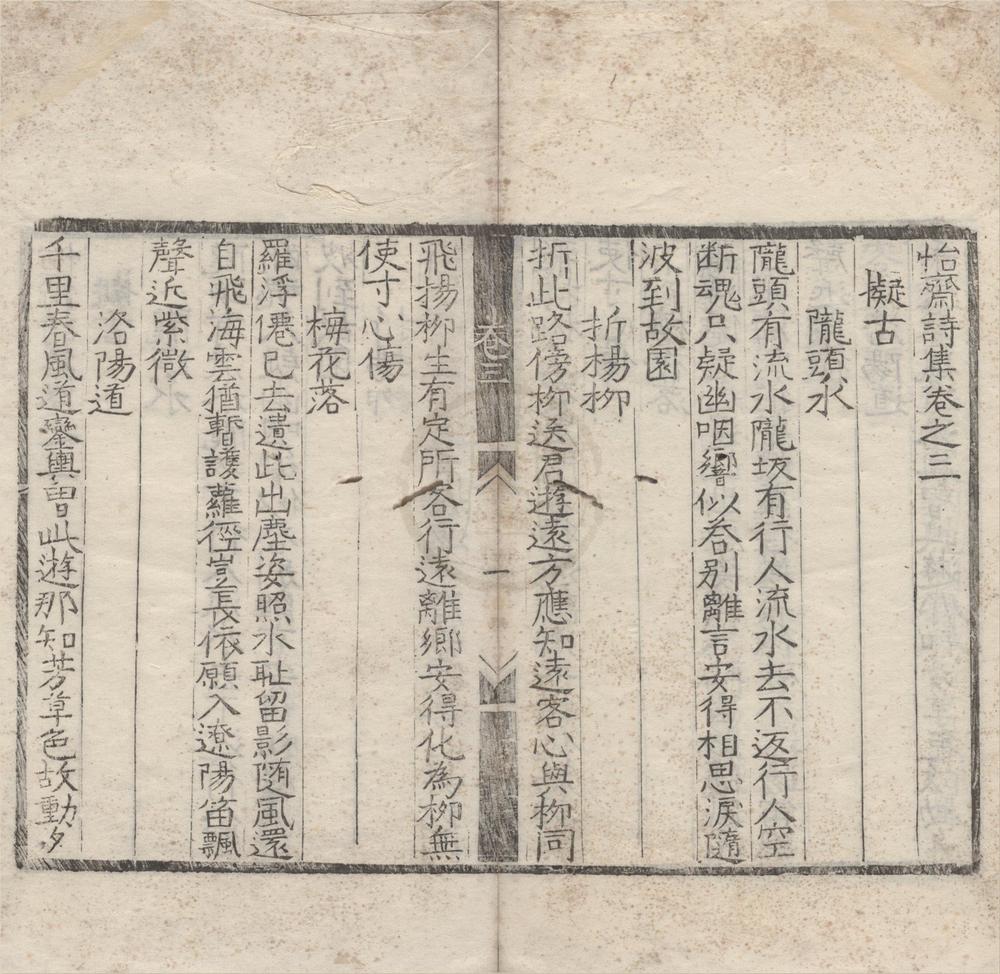 怡齋詩集卷之三
擬古
隴頭水
隴頭有流水隴坂有行人流水去不返行人空
断魂只疑幽咽響似答別離言安得相思淚隨
波到故園
折楊柳
折此路傍柳送君遊遠方應知遠客心與柳同
卷三
一
飛揚柳生有定所客行遠離鄉安得化為柳無
使寸心傷
梅花落
羅浮僊已去遺此出塵姿照水耻留影随風還
自飛海雲猶暫護蘿徑豈長依願入遼陽笛飄
聲近紫微
洛陽道
千里春風道鑾輿曽此遊那知芳草色故動夕